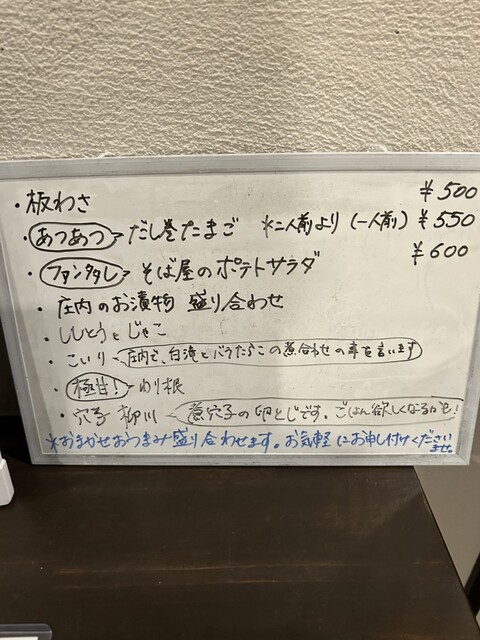 ・板わさ ¥500
・あつあつ だし巻たまご *二人前より(一人前) ¥550
・ファンタタし そば屋のポテトサラダ ¥600
・庄内のお漬物 盛り合わせ
・ししとうとじゃこ
・こいり 庄内で、白滝とバラたらこの煮合わせの事を言います
・極甘! めり根
・穴子 柳川 煮穴子の卵とじです。ごはん欲しくなるかも!
*おまかせおつまみ盛り合わせます。お気軽にお申し付けくださいませ。